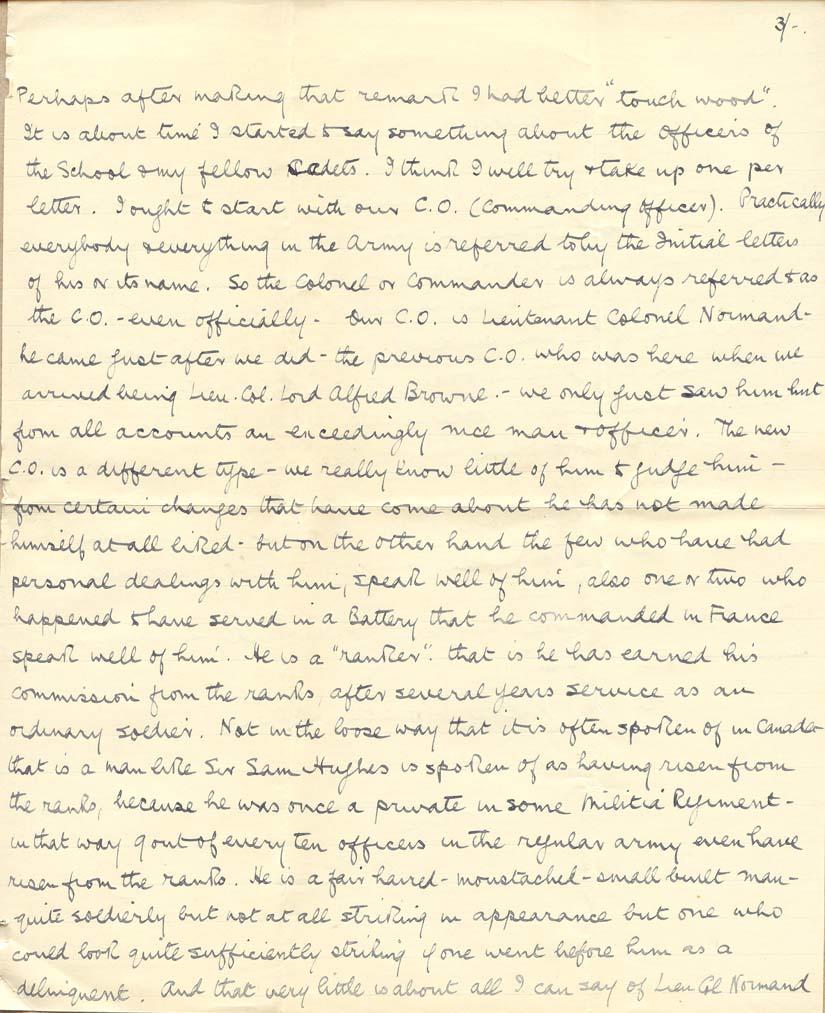 3/-.
Perhaps after making that remark I had better "touch wood".
It is about time I started to say something about the officers of
the School & my fellow cadets. I think I will try & take up one per
letter. I ought to start with our C.O. (Commanding Officer). Practically
everybody & everything in the Army is referred to by the Initial letters
of his or its name. So the Colonel or Commander is always referred to as
the C.O. - even officially - Our C.O. is Lieutenant Colonel Normand -
he came just after we did - the previous C.O. who was here when we
arrived being Lieu. Col. Lord Alfred Browne. - we only just saw him but
from all accounts an exceedingly nice man & officer. The new
C.O. is a different type - we really know little of him to judge him -
from certain changes that have come about he has not made
himself at all liked - but on the other hand the few who have had
personal dealings with him, speak well of him, also one or two who
happened to have served in a Battery that he commanded in France
speak well of him. He is a "ranker". that is he has earned his
commission from the ranks, after several years service as an
ordinary soldier. Not in the loose way that it is often spoken of in Canada -
that is a man like Sir Sam Hughes is spoken of as having risen from
the ranks, because he was once a private in some Militia Regiment -
in that way 9 out of every ten officers in the regular army even have
risen from the ranks. He is a fair haired - moustached - small built man -
quite soldierly but not at all striking in appearance but one who
could look quite sufficiently striking if one went before him as a
delinquent. And that very little is about all I can say of Lieu Col Normand